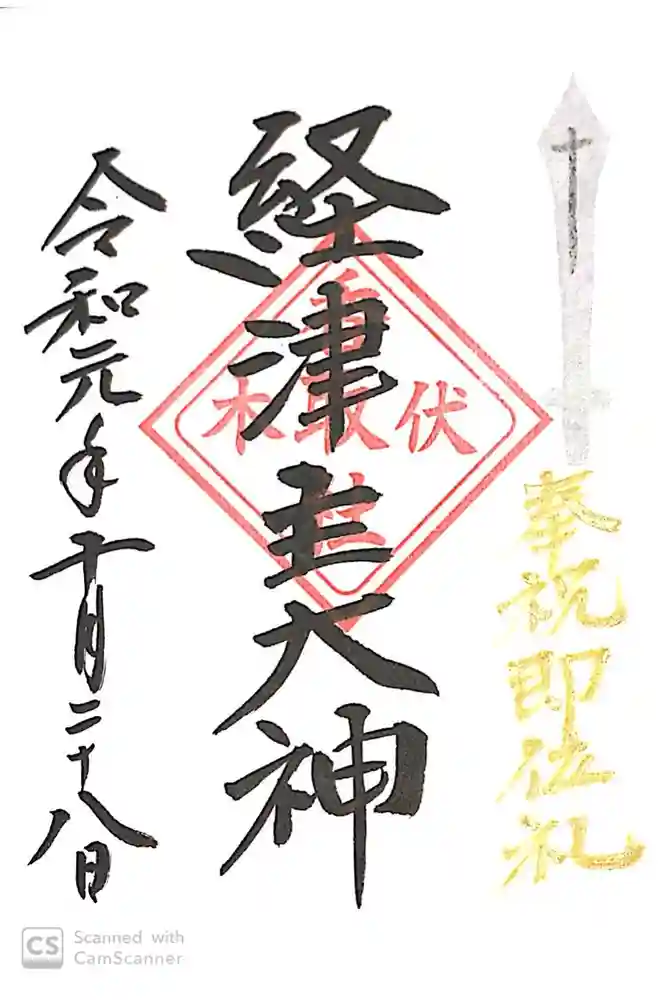 奉祝即位礼
経津主大神
伏木
香取社
令和元年十月二十八日
CS Scanned with
CamScanner